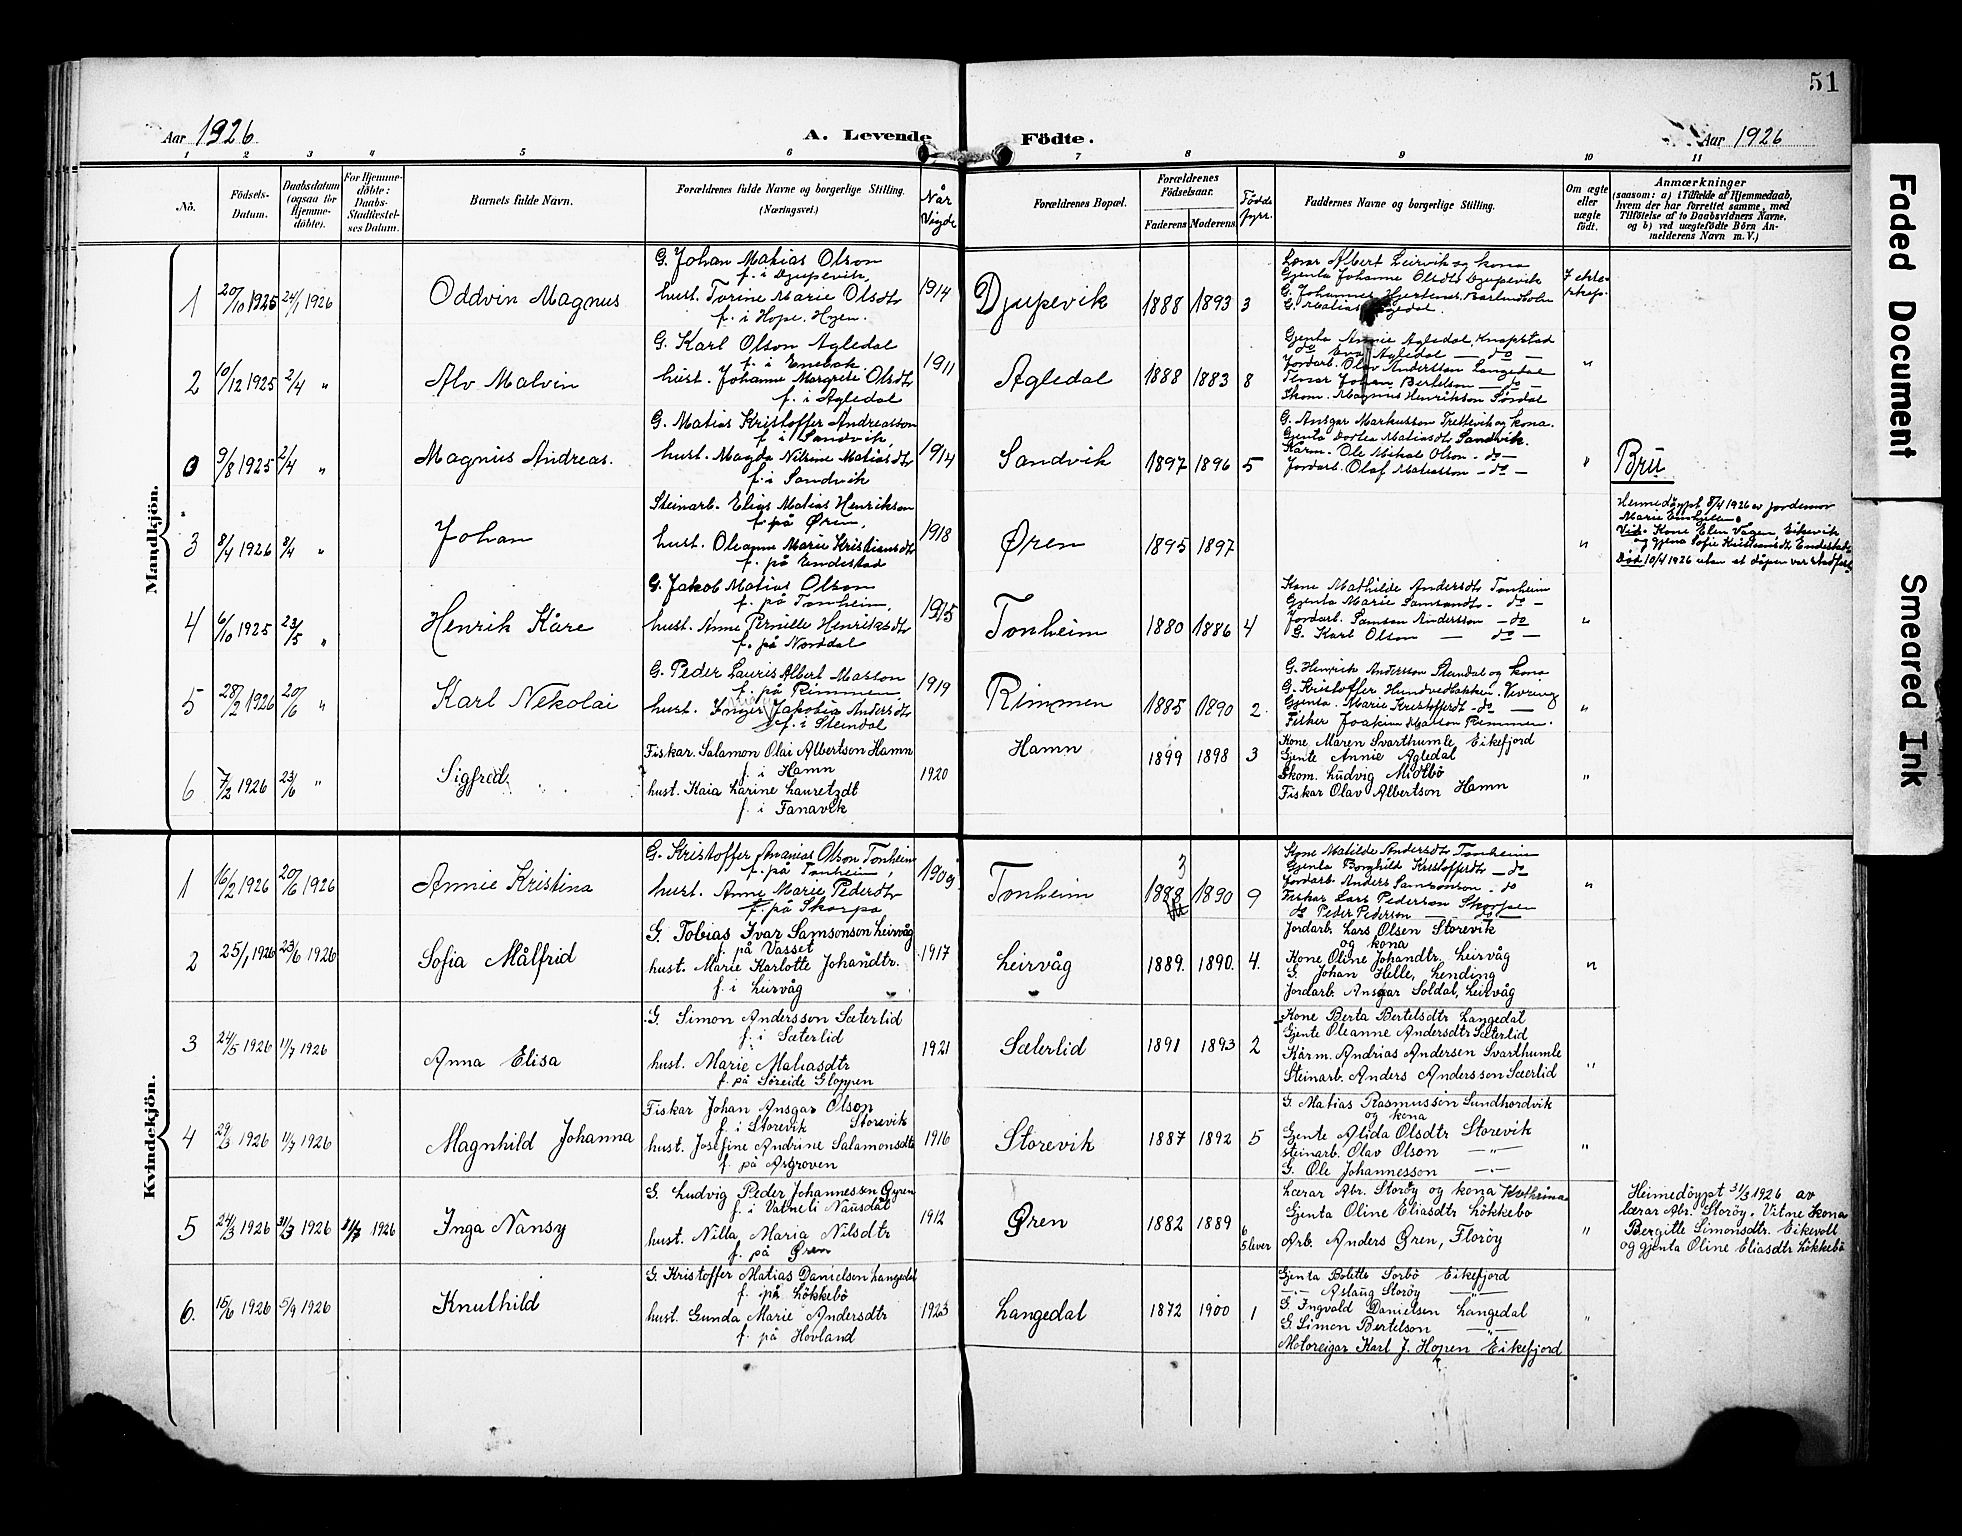 51
Aar 1926
A. Levende
Födte.
Aar 1926
1 2 3 4 5 6 7 8 9 10 11
Nô.
Födsels-
Datum.
Daabsdatum
(ogsaa for
Hjemme-
döbte).
For Hjemme-
döbte:
Daabs-
Stadfæstel-
ses Datum.
Barnets fulde Navn.
Forældrenes fulde Navne og borgerlige Stilling.
(Næringsvei.)
Når
Vigde
Forældrenes Bopæl.
Forældrenes
Födselsaar.
Faderens
Moderens
Födde
fyrr.
Faddernes Navne og borgerlige Stilling.
Om ægte
eller
uægte
födt.
Anmærkninger
(saasom: a) i Tilfælde af Hjemmedaab,
hvem der har forrettet samme, med
Tilföielse af to Daabsvidners Navne.
og b) ved uægtefödte Börn An-
melderens Navn m. V.)
Mandkjön.
1 20/10 1925 24/1 1926 Oddvin Magnus
G. Johan Matias Olson
f. i Djupevik,
hust. Torine Marie Olsdtr
f. i Hope. Hyen.
1914 Djupevik 1888 1893 3
Lærar Albert Leirvik og kona
Gjenta Johanne Olsdtr Djupevik
G. Johannes Hjertenes, Barlindbotn
G. Matias
2 10/12 1925 2/4 " Alv Malvin
G. Karl Olson Agledal
f. i
hust. Johanne Margrete Olsdtr
f. i Agledal
1911 Agledal 1888 1883 8
Gjenta Annie Agledal Knapstad
do Eva Agledal — do —
Jordarb. Olav Andersson Langedal
Johan Bertelson — do —
Skom. Magnus Henrikson Sördal
"
0 9/8 1925 2/4 " Magnus Andreas.
G. Matias Kristoffer Andreasson
f. i Sandvik,
hust. Magda Nilsine Matiasdtr
f. i Sandvik
1914 Sandvik 1897 1896 5
G. Ansgar Markusson Trettevik og kona.
Gjenta Dortea Matiasdtr Sandvik.
Kårm. Ole Mikal Olson - do -
Jordarb. Olaf Matiasson - do -
" Bru
3 8/4 1926 8/4 " Johan
Steinarb. Elias Matias Henrikson
f. på Øren,
hust. Oleanna Marie Kristiansdtr
f. på Endestad
1918 Øren 1895 1897
"
Heimedöypt 8/4 1926 av jordmor
Marie
Vid. Kone Elen Vågen, Eikevik
og gjenta Sofie Kristiansdtr Endestad
Död 10/4 1926 utan at dåpen var stadfest
4 6/10 1925 23/5 " Henrik Kåre
G. Jakob Matias Olson
f. på Tonheim,
hust. Anne Pernille Henriksdtr
f. på Norddal
1915 Tonheim 1880 1886 4
Kone Mathilde Andersdtr Tonheim
Gjenta Marie Samsondtr - do -
Jordarb. Samson Andersson - do
G. Karl Olson — do —
"
5 28/2 1926 20/6 " Karl Nekolai
G. Peder Lauris Albert Masson
f. på Rimmen
hust. Inger Jakobia Andersdtr
f. i Steindal
1919 Rimmen 1885 1890 2
G. Henrik Andersson Steindal og kona
G. Kristoffer Hundvedbakken. Vevring
Gjenta. Marie Kristofferdtr - do —
Fisker Joakim Masson Rimmen.
"
6 7/2 1926 23/6 " Sigfred.
Fiskar. Salamon Olai Albertson Hamn
f. i Hamn
hust. Kaia Larine Lauretzdt
f. i Fanavik
1920 Hamn 1899 1898 3
Kone Maren Svarthumle Eikefjord
Gjente Annie Agledal
Skom. Ludvig Midtbö
Fiskar Olav Albertson Hamn
"
Kvindekjön.
1 16/2 1926 20/6 1926 Annie Kristina
G. Kristoffer Ananias Olson Tonheim
f. på Tonheim,
hust. Anne Marie Pedersdtr
f. på Skorpa
1909 Tonheim 3 1888 1890 9
Kone Matilde Andersdtr Tonheim
Gjenta Borghild Kristoffersdtr - do
Jordarb. Anders Samsonson - do
Fiskar Lars Pederson Skorpen
do Peder Pederson — do —
"
2 25/1 1926 23/6 1926 Sofia Målfrid
G. Tobias Ivar Samsonson Leirvåg
f. på Vasset
hust. Marie Karlotte Johandtr.
f. i Leirvåg
1917 Leirvåg 1889. 1890. 4.
Jordarb. Lars Olsen Storevik
og kona
Kone Oline Johandtr, Leirvåg
G. Johan Helle, Lending
Jordarb. Ansgar Soldal, Leirvåg
"
3 24/5 1926 11/7 1926 Anna Elisa
G. Simon Andersson Sæterlid
f. i Sæterlid
hust. Marie Matiasdtr
f. på Söreide Gloppen
1921 Sæterlid 1891 1893 2
Kone Berta Bertelsdtr Langedal
Gjente Oleanne Andersdtr Sæterlid
Kårm. Andrias Andersen Svarthumle
Steinarb. Anders Andersson Sæterlid
"
4 29/3 1926 11/7 1926 Magnhild Johanna
Fiskar Johan Ansgar Olson
f. i Storevik Storevik
hust. Josefine Andrine Salamonsdtr
f. på Årgroven
1916 Storevik 1887 1892 5
G. Matias Rasmusson Sundhordvik
og kona
Gjente Alida Olsdtr Storevik
Steinarb. Olav Olson —"—
G. Ole Johannesson —"—
"
5 24/3 1926 31/3 1926 11/7 1926 Inga Nansy
G. Ludvig Peder Johannessen Öyren
f. i Vatneli Naustdal
hust. Nilla Maria Nilsdtr
f. på Øren
1912 Øren 1882 1889 6
5 lever
Lærar Abr. Storöy og kona Kathrina
Gjenta Oline Eliasdtr Lökkebö
Arb. Anders Øren, Floröy
"
Heimedöypt 31/3 1926 av
lærar Abr. Storöy. Vitne Kona
Bergitte Simonsdtr. Eikevoll
og gjenta Oline Eliasdtr Lökkebö
6. 15/6 1926 5/9 1926 Knuthild
G. Kristoffer Matias Danielsen Langedal
f. på Lökkebö
hust. Gunda Marie Andersdtr
f. på Hovland
1923 Langedal 1872 1900 1
Gjenta Bolette Sorbö Eikefjord
—"— Aslaug Storöy —"—
G. Ingvald Danielsen Langedal
G. Simon Bertelson —"—
Motoreigar Karl J. Hopen Eikefjord
"
Faded Document
Smeared Ink